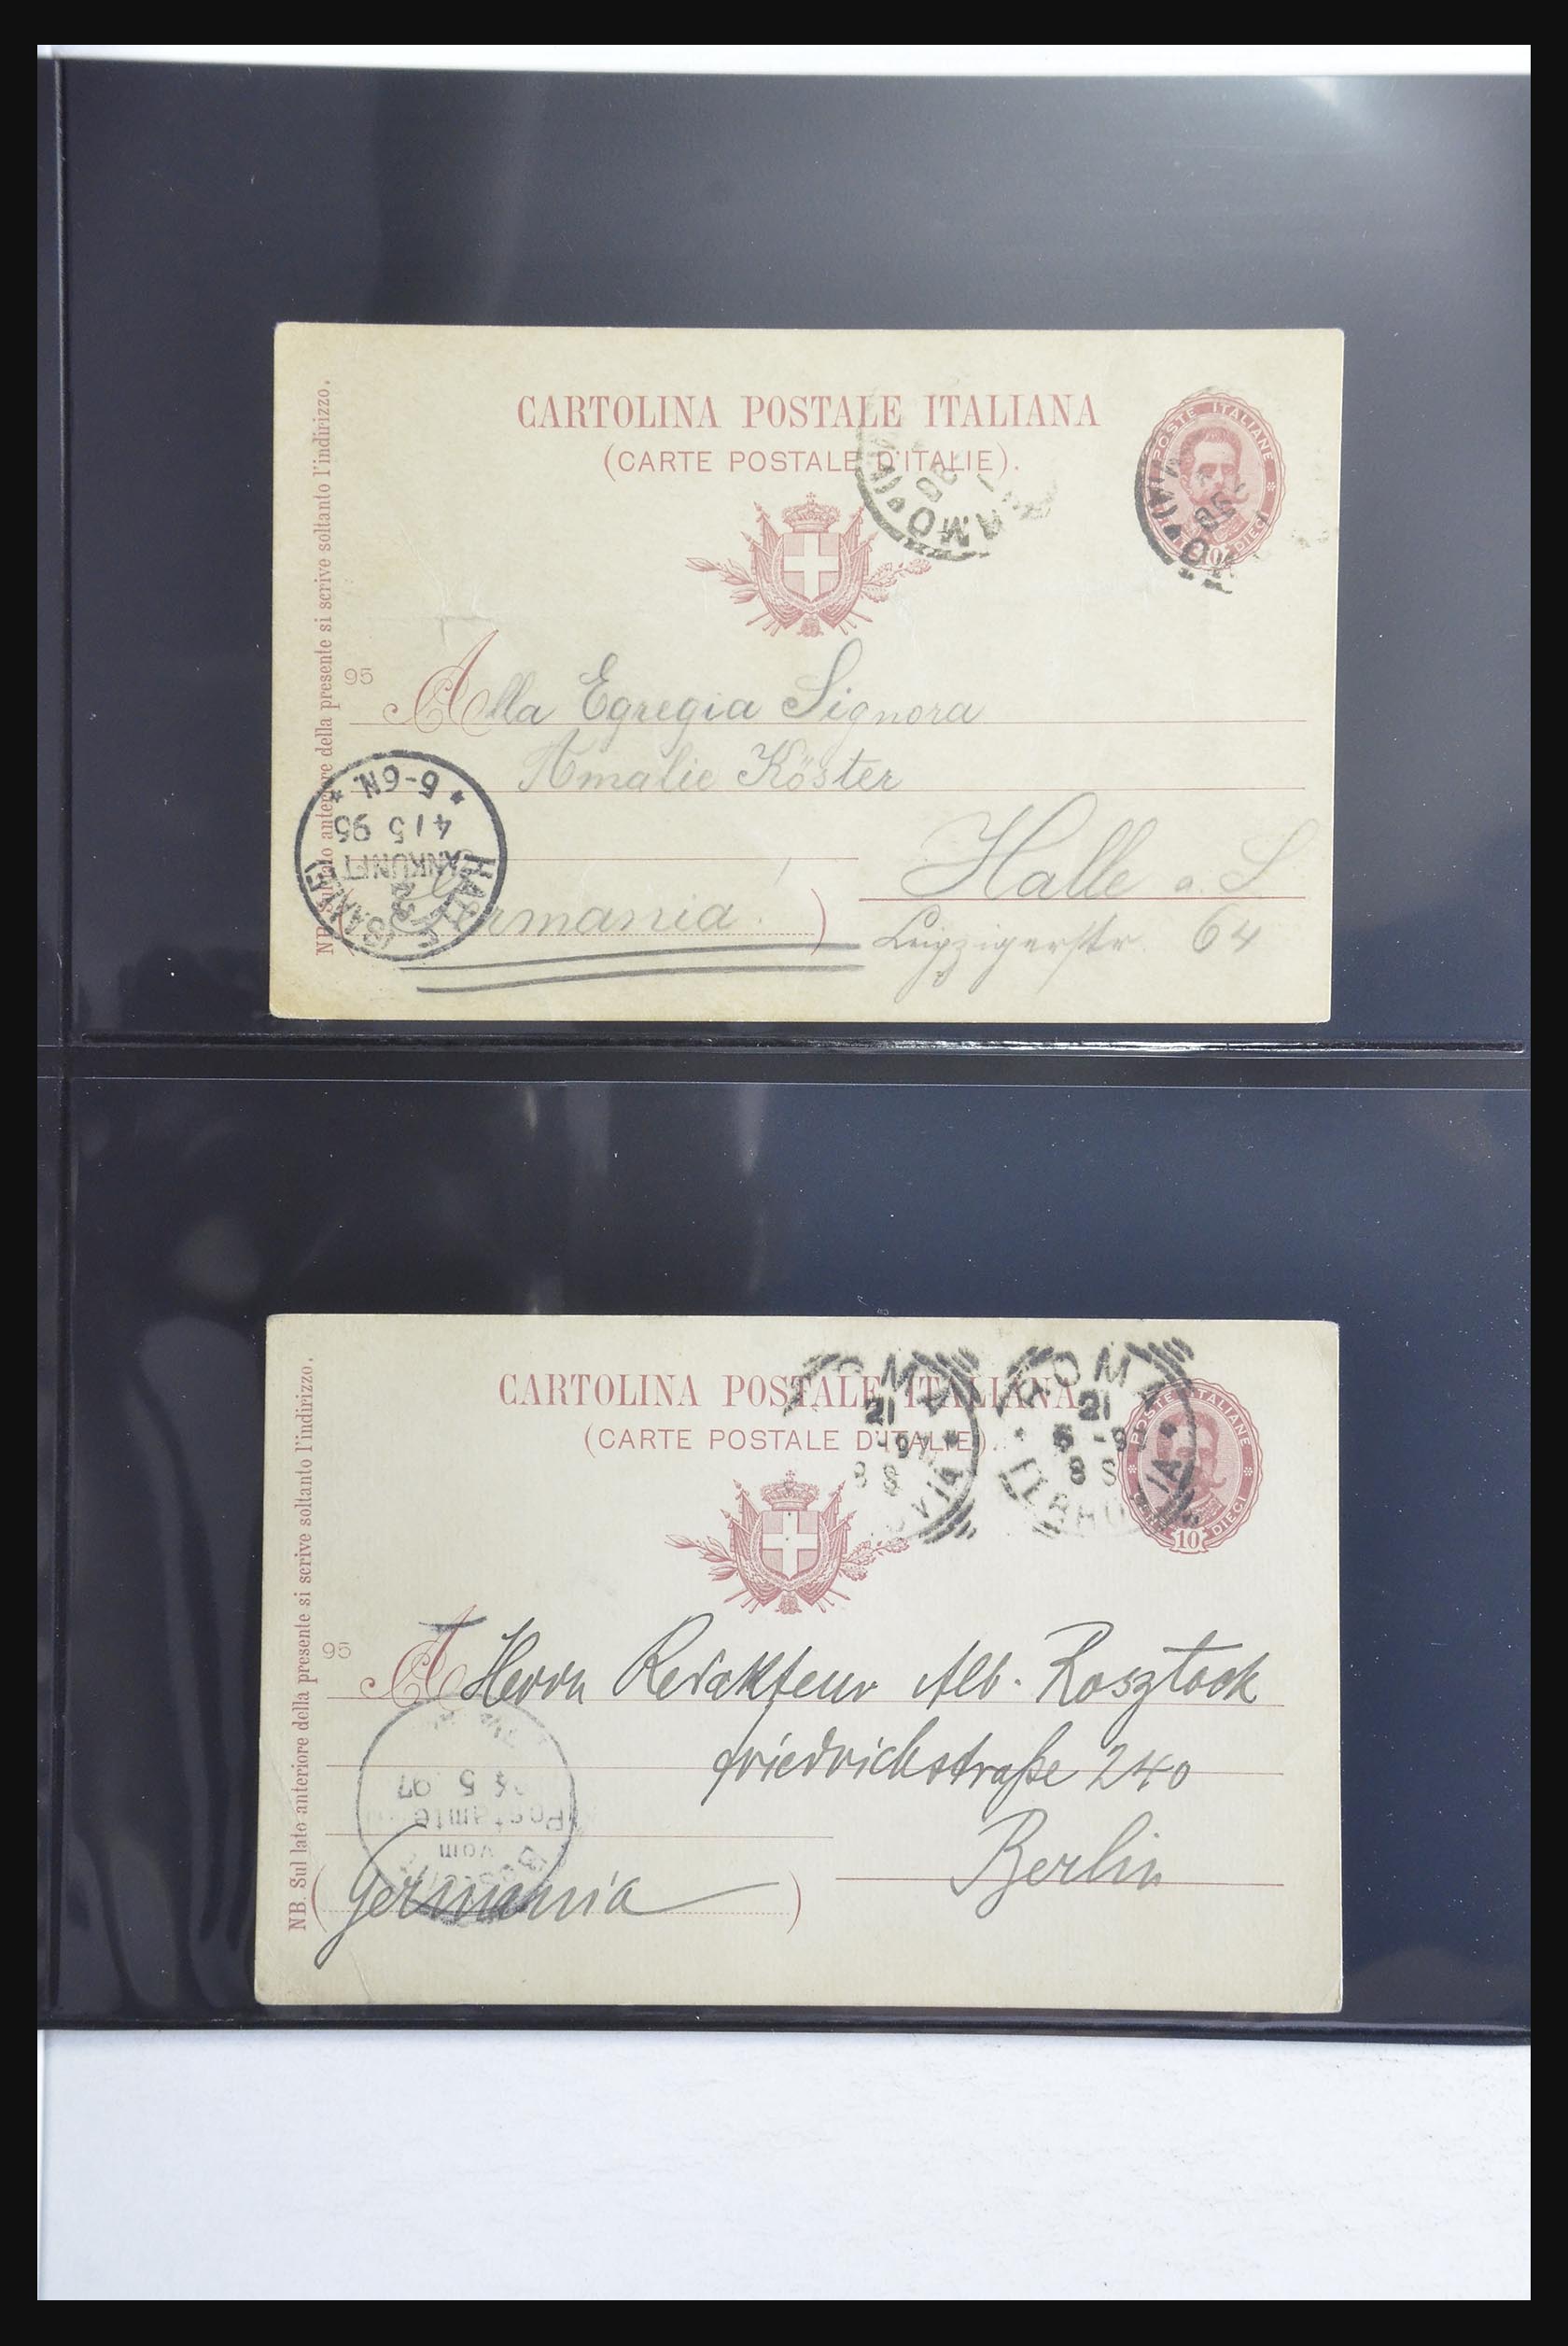 CARTOLINA POSTALE ITALIANA
(CARTE POSTALE D'ITALIE).
POSTE ITALIANE
10
DIECI
NB. Sul lato anteriore della presente si scrive soltanto l'indirizzo.
95
Alla Egregia Signora
Amalie Köster
Halle a. S.
Germania!
Leipzigerstr. 64
HALLE (SAALE)
2
ANKUNFT
4/5 95
5-6N.
CARTOLINA POSTALE ITALIANA
(CARTE POSTALE D'ITALIE).
POSTE ITALIANE
10
DIECI
ROMA
21
5-9
8 S
FERROVIA
ROMA
21
-97
8 S
NB. Sul lato anteriore della presente si scrive soltanto l'indirizzo.
95
A Herrn Redakteur Alb. Rosztock
Friedrichstraße 240
Berlin
(Germania)
vom
Postamte
5 97